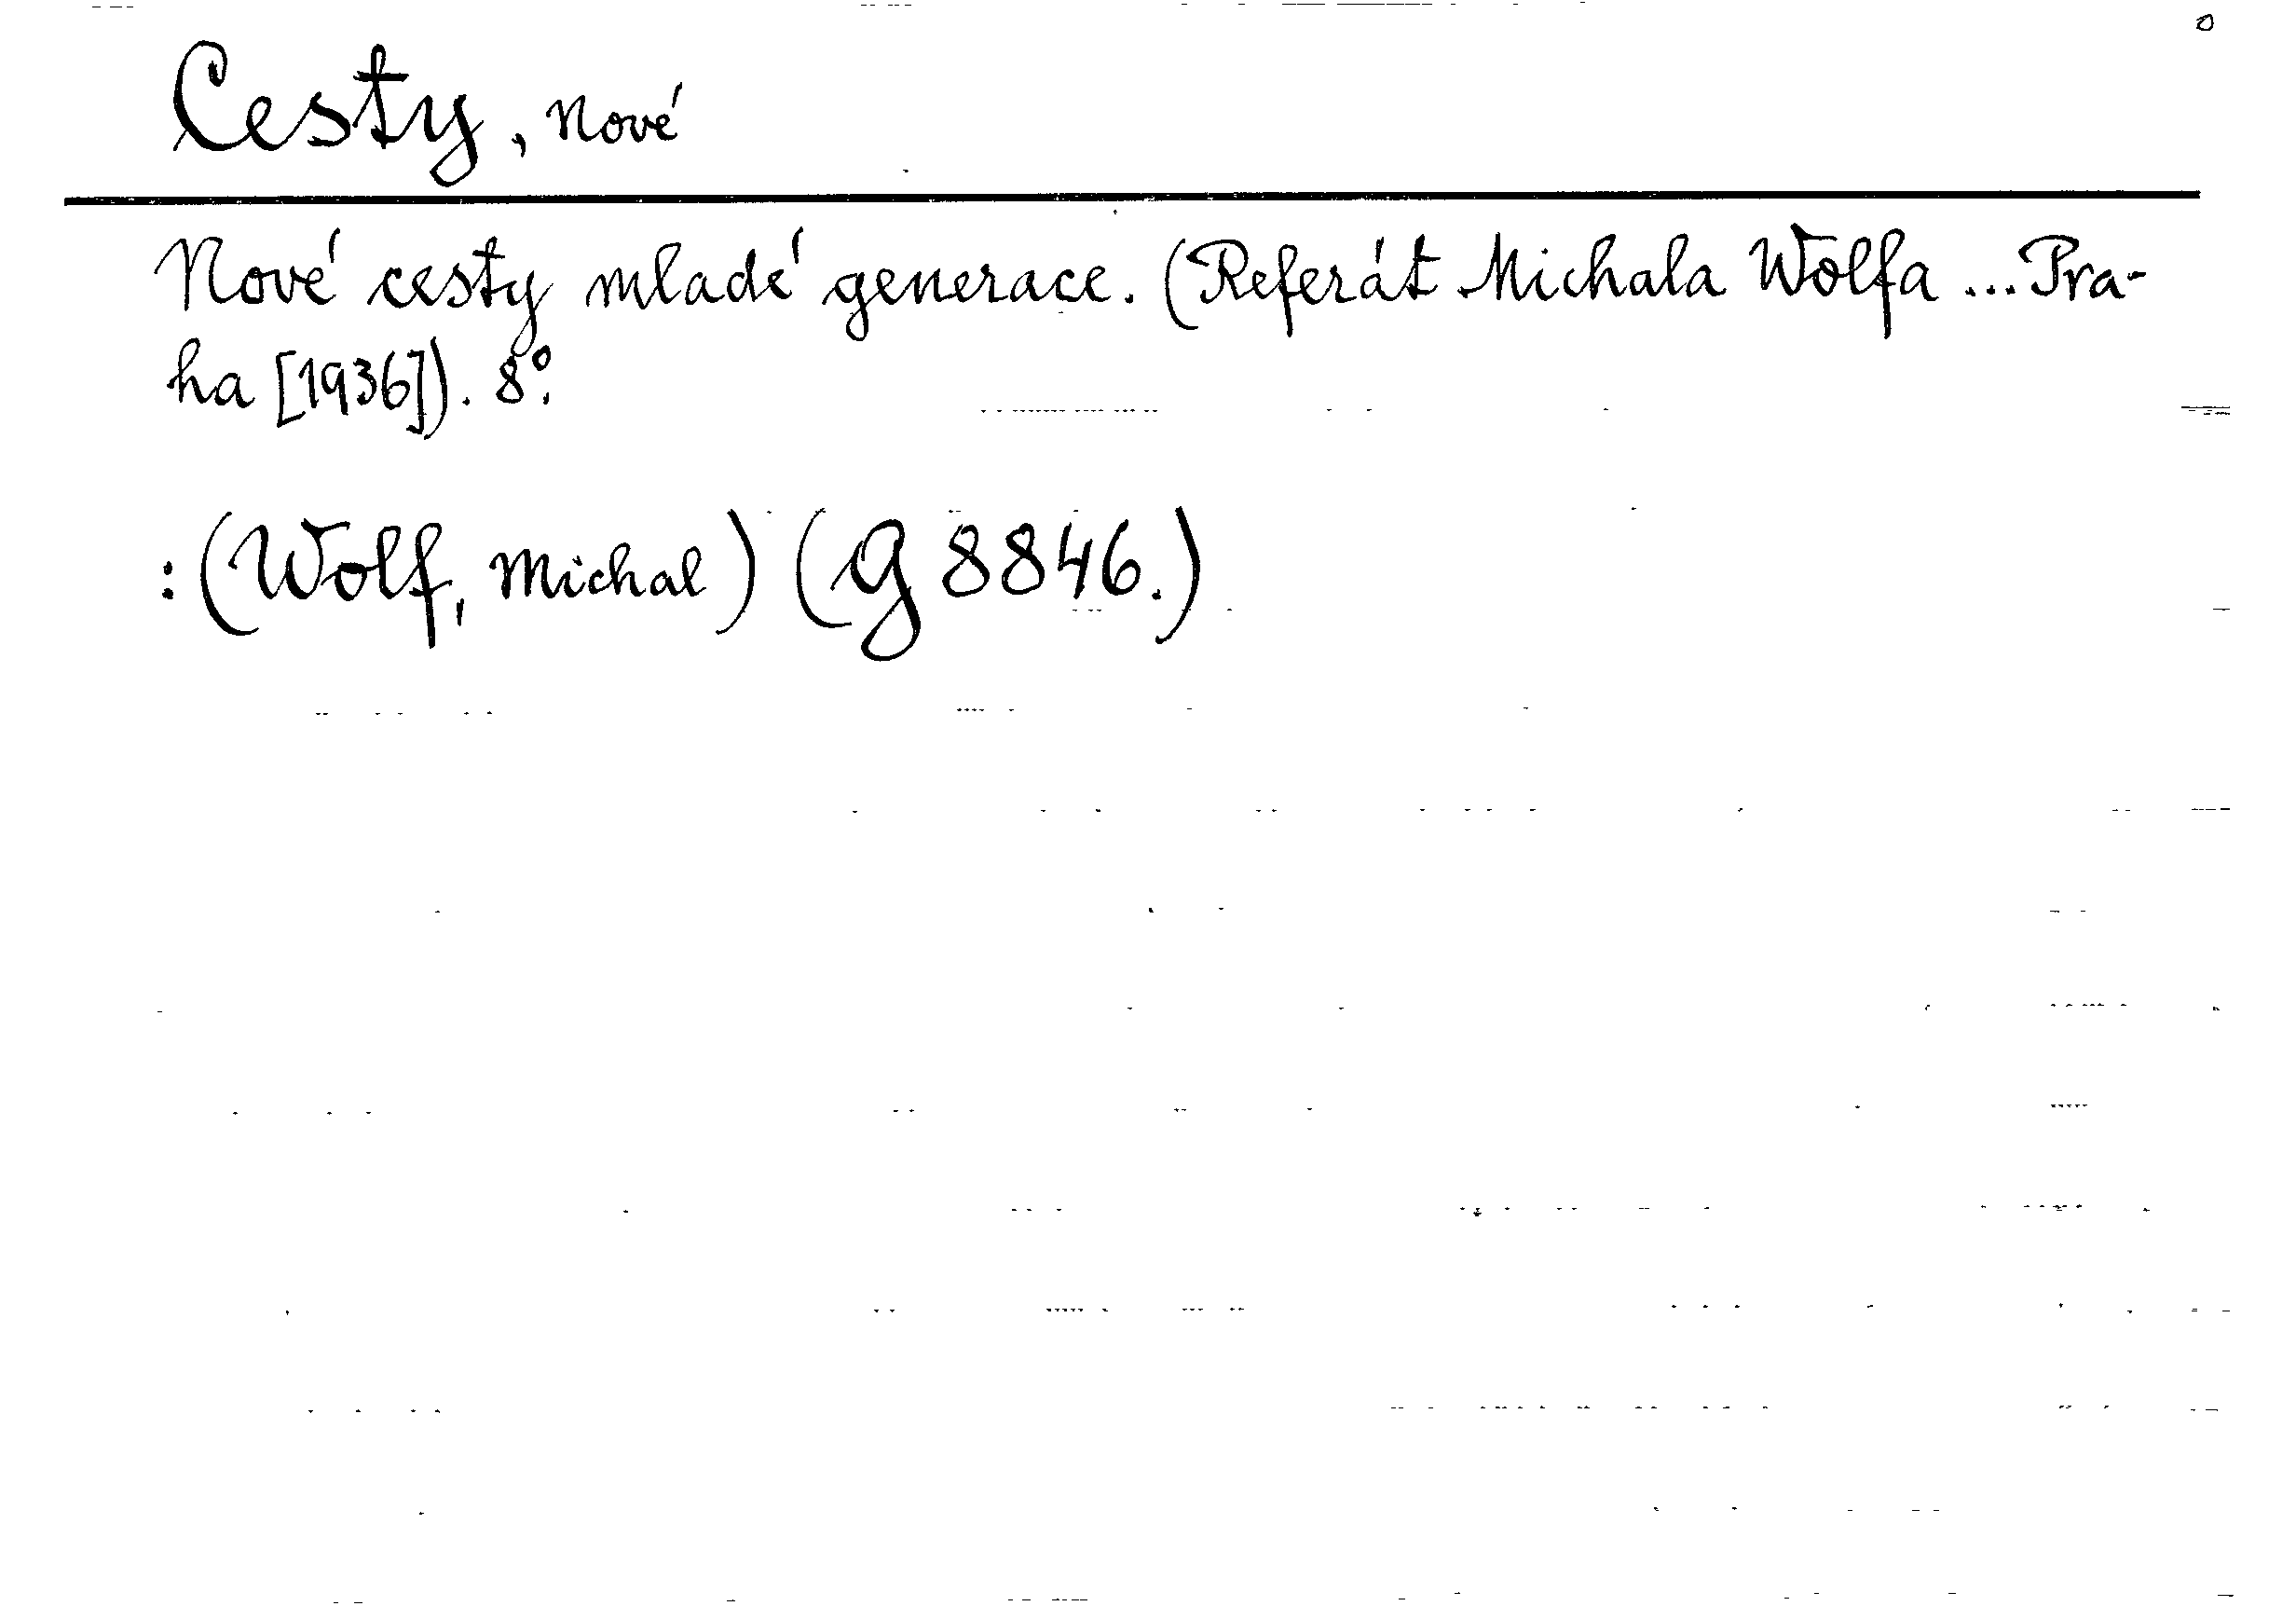 Cesty, Nové
Nové cesty mladé generace. (Referát Michala Wolfa ... Pra-
ha [1936]). 8°.
: (Wolf, Michal) (g 8846.)